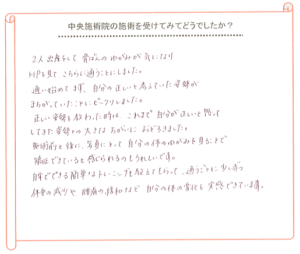 中央施術院の施術を受けてみてどうでしたか?
2人出産をして 骨ばんのゆがみが気になり
HPを見て こちらに通うことにしました。
通い始めて まず、自分の正しいと考えていた姿勢が
まちがっていたことにビックリしました。
正しい姿勢を教わった時は、これまで自分が正しいと思って
してきた姿勢との大きなちがいに おどろきました。
施術前と後に、写真にとって 自分の体のゆがみを見ることで
矯正できていると感じられるのもうれしいです。
自宅でできる簡単なトレーニングも教えてもらって、通うごとに少しずつ
体重の減少や 腰痛の緩和など 自分の体の変化を 実感できています。